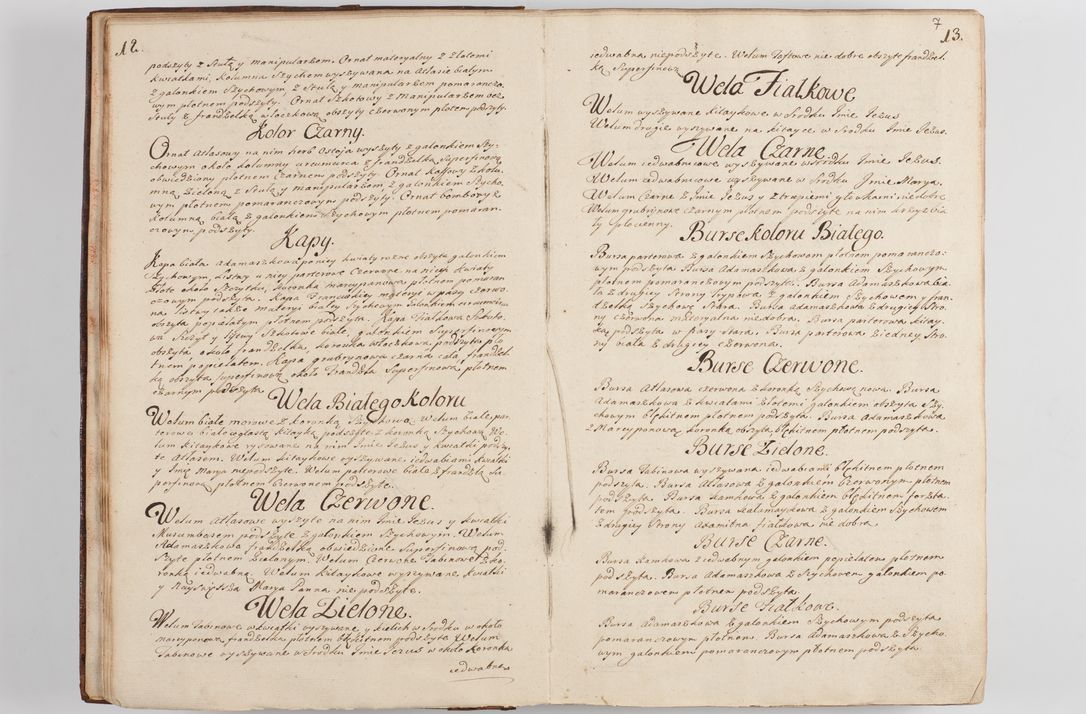 12.
podszyty z Stułą y manipularzem. Ornat materyalny z złotemi
kwiatkami, kolumna szychem wyszywana na Atłasie białym
z galonkiem szychowym, z Stułą y manipularzem pomarancza-
wym płotnem podszyty. Ornat szkotowy z manipularzem bez
Stuły z frandzelką włoczkową obszyty czerwonym płotnem podszyty.
Kolor Czarny.
Ornat Atłasowy na nim herb Ostoja wyszyty z galonkiem szy-
chowym około kolumny circumcirca z frandzelką superfinową
obwiedziony płotnem czarnem podszyty. Ornat kaffowy z kolu-
mną zieloną z Stułą y manipularzem z galonkiem szycho-
wym płotnem pomaranczowym podszyty. Ornat bomborys z
kolumną białą z galonkiem szychowym płotnem pomaran-
czowym podszyty.
Kapy.
Kapa biała Adamaszkowa po niey kwiaty rozne obszyta galonkiem
szychowym, listwy u niey parterowe czerwone na nich kwiaty
złote około szczytku, koronka marcypanowa płotnem pomaran-
czowym podszyta. Kapa Francuskiey materyi w pasy czerwo-
na listwy także materyi białe szychowym galonkiem circumcirca
obszyta popielatym płotnem podszyta. Kapa Fiałkowa
wa szczyt y listwy szkotowe białe, galonkiem superfinowym
obszyta około frandzelka, koronka włoczkowa, podszyta pło-
tnem popielatem. Kapa grubrynowa czarna cała frandzel-
ką obszyta superfinową około Frandzla superfinowa, płotnem
czarnym podszyta.
Wela Białego koloru
Welum białe morowe z koronką szychową. Welum białe par-
terowe białe w głaszcz kitayką podszyte z koronką szychową. We-
lum kitaykowe rysowane na nim Imie Jezus y kwiatki podszy-
te Atłasem. Welum kitaykowe wyszywane iedwabiami kwiatki
y Imię Marya niepodszyte. Welum parterowe białe z frandzlą su-
perfinową płotnem czerwonem podszyte.
Wela Czerwone.
Welum Atłasowe wyszyte na nim Imie Jezus y kwiatki
Musembasem podszyte z galonkiem szychowym. Welum
Adamaszkowe frandzelką obwiedzione superfinową pod-
szyte płotnem zielonym. Welum czerwone Tabinowe z ko-
ronką iedwabną. Welum kitaykowe wyszywane kwiatki
y Nayswiętsza Marya Panna nie podszyte.
Wela Zielone.
Welum Tabinowe w kwiatki wyszywane y kielich w środku w około
marcyponowa frandzelka płotnem błękitnem podszyta. Welum
Tabinowe wyszywane w środku Imie Jezus w około koronka
iedwabna
7
13.
iedwabna niepodszyte. Welum Taftowe nie dobre obszyte frandzel-
ką superfinową.
Wela Fiałkowe
Welum wyszywane kitaykowe w środku Imie Jezus
Welum drugie wyszywane na kitayce w środku Imie Jezus.
Wela Czarne
Welum iedwabnicowe wyszywane w środku Imie Jezus.
Welum iedwabnicowe wyszywane w środku Imie Marya.
Welum Czarne z Imie Jezus y z trupiemi głowkami nie dobre
Welum grubrinowe czarnym płotnem podszyte na nim krzyż bia-
ły płocienny.
Burse koloru Białego.
Bursa parterowa z galonkiem szychowem płotnem pomarancza-
wym podszyta. Bursa Adamaszkowa z galonkiem szychowym,
płotnem pomaranczowym podszyte. Bursa Adamaszkowa bia-
ła z drugiey strony trypowa z galonkiem szychowem y fran-
dzelką szychową stara. Bursa Adamaszkowa z drugiey stro-
ny czerwona materyalna niedobra. Bursa parterowa kitay-
ką podszyta w pasy stara. Bursa parterowa z iedney stro-
ny biała z drugiey czerwona.
Burse Czerwone.
Bursa Atłasowa czerwona z koronką szychową nowa. Bursa
Adamaszkowa z kwiatami złotemi galonkiem obszyta szy-
chowym błękitnem płotnem podszyta. Bursa Adamaszkowa
z Marcyponową koronką obszyta błękitnem płotnem podszyta.
Burse Zielone.
Bursa Tabinowa wyszywana iedwabiami błękitnem płotnem
podszyta. Bursa Atłasowa z galonkiem czerwonym płotnem
podszyta. Bursa kamkowa z galonkiem błękitnem forszta-
tem podszyta. Bursa kałamaykowa z galonkiem szychowem
z drugiey strony Axamitna fiałkowa nie dobra.
Burse Czarne.
Bursa kamkowa z iedwabnym galonkiem popielatem płotnem
podszyta. Bursa Adamaszkowa z szychowem galonkiem po-
maranczowem płotnem podszyta.
Burse Fiałkowe.
Bursa Adamaszkowa z galonkiem szychowym podszyta
pomaranczowym płotnem. Bursa Adamaszkowa z szycho-
wym galonkiem pomaranczowym płotnem podszyta.